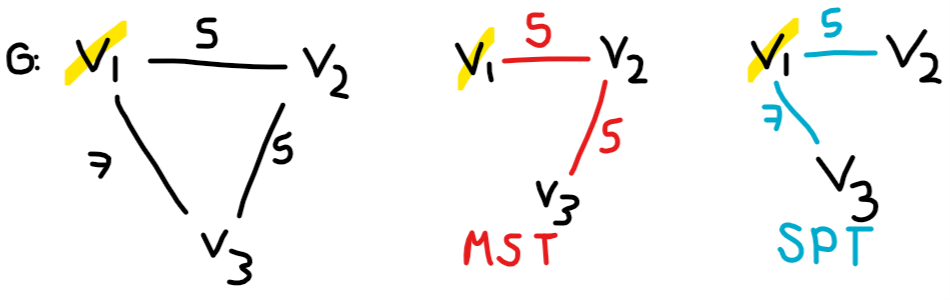 G: V1 5 V2 7 5 V3
V1 5 V2 5 V3
MST
V1 5 V2 7 V3
SPT